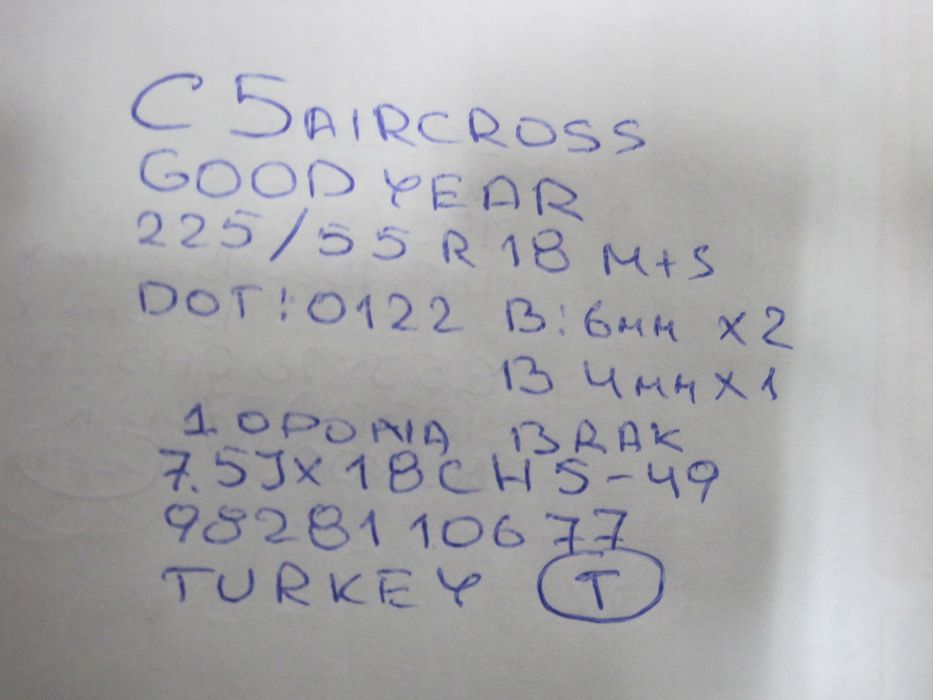 C 5 AIRCROSS
GOOD YEAR
225/55 R 18 M+S
DOT: 0122 B: 6mm x2
B 4mm x1
1 OPONA BRAK
7.5JX18CH5-49
9828110677
TURKEY T